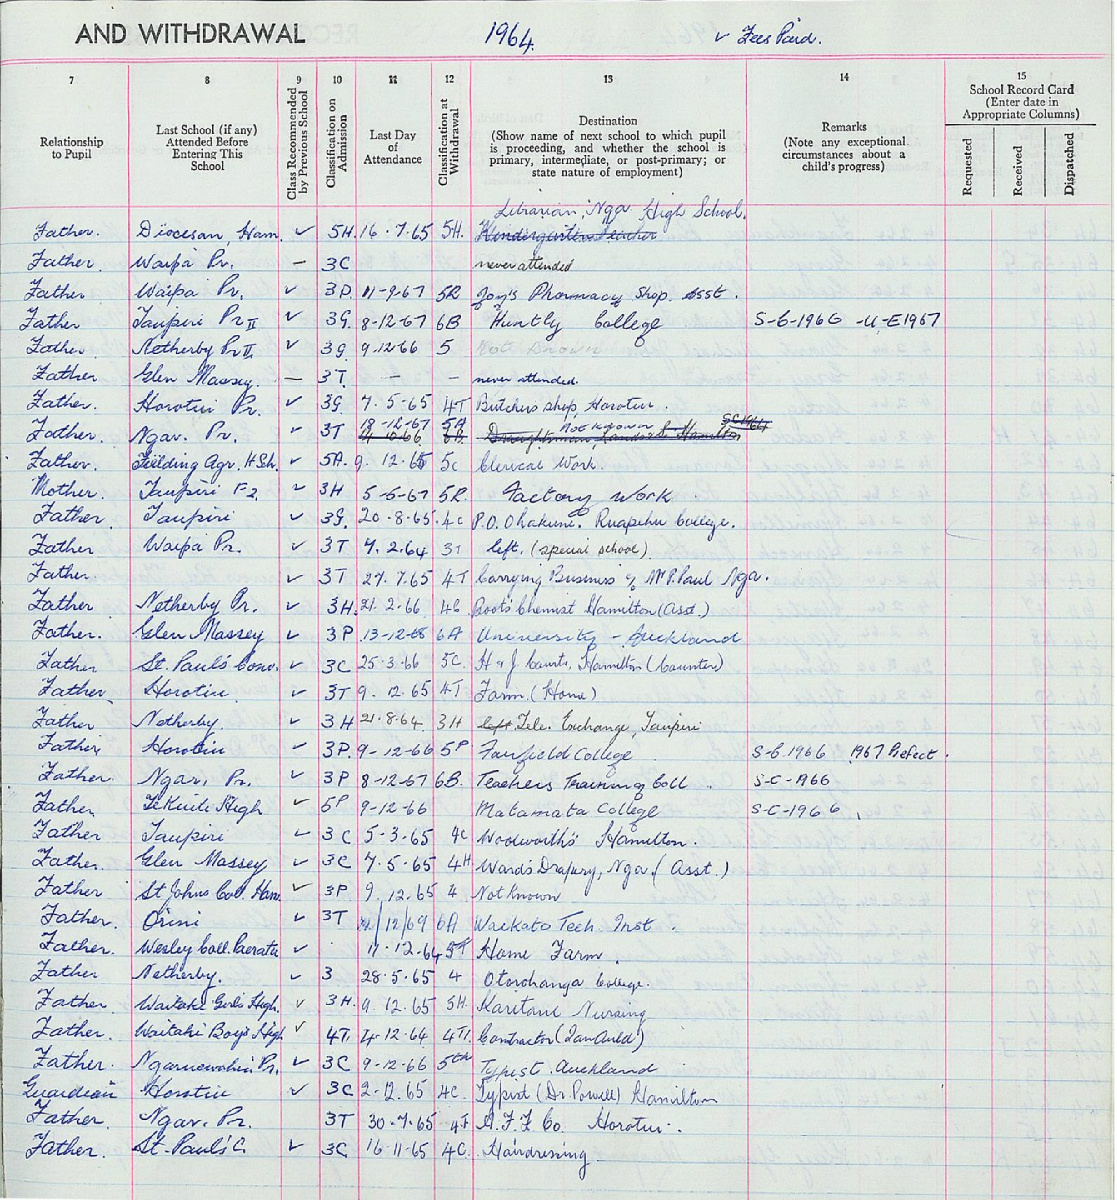 AND WITHDRAWAL 1964 ✓ Fees Paid.
7 8 9 10 11 12 13 14 15
Relationship to Pupil
Last School (if any) Attended Before Entering This School
Class Recommended by Previous School
Classification on Admission
Last Day of Attendance
Classification at Withdrawal
Destination (Show name of next school to which pupil is proceeding, and whether the school is primary, intermediate, or post-primary; or state nature of employment)
Remarks (Note any exceptional circumstances about a child's progress)
School Record Card (Enter date in Appropriate Columns)
Requested Received Dispatched
Librarian, Nga High School.
Father. Diocesan, Ham. ✓ 5H. 16 . 7.65 5H. Kindergarten Teacher
Father. Waipa Pr. — 3C never attended
Father Waipa Pr. ✓ 3P. 11-9-67 5R Joy's Pharmacy Shop. Asst.
Father Taupiri Pr II ✓ 3G. 8-12-67 6B Huntly College S-C-1966 -U-E1967
Father Netherby Pr II. ✓ 3G 9.12.66 5 Not Known
Father Glen Massey. — 3T. — — never attended.
Father. Horotiu Pr. ✓ 3G 7.5.65 4T Butchers shop, Horotiu.
Father. Ngar. Pr. ✓ 3T 18-12-67 5A Not known
Father. Feilding Agr. H Sch. ✓ 5A. 9. 12.65 5c Clerical Work.
Mother. Taupiri F2 ✓ 3H 5-5-67 5R. Factory Work
Father. Taupiri ✓ 3G. 20-8.65. 4c P.O. Ohakune. Ruapehu College.
Father Waipa Pr. ✓ 3T 7. 2.64 3T left. (special school)
Father. ✓ 3T 27. 7.65 4T Carrying Business of Mr P. Paul Nga.
Father Netherby Pr. ✓ 3H. 21. 2.66 4C Boots Chemist Hamilton (Asst.)
Father. Glen Massey ✓ 3P .13-12-68 6A University - Auckland
Father St. Paul's Conv. ✓ 3C 25.3.66 5C. H & J Courts, Hamilton (Counter)
Father Horotiu ✓ 3T 9. 12.65 4T Farm. (Home)
Father Netherby ✓ 3H 21.8.64. 3H left Tele. Exchange, Taupiri
Father Horotiu ✓ 3P. 9-12-66 5P Fairfield College S-C.1966 1967 Prefect.
Father. Ngar. Pr. ✓ 3P 8-12-67 6B. Teachers Training Coll. S-C-1966
Father Te Kuiti High ✓ 5P 9-12-66 Matamata College S-C-1966
Father Taupiri ✓ 3C 5-3.65 4c Woolworth's Hamilton.
Father. Glen Massey ✓ 3C 7.5.65 4H Ward's Drapery, Nga. (Asst.)
Father St Johns Coll. Ham. ✓ 3P 9. 12.65 4 Not known
Father. Orini ✓ 3T 12/69 6A Waikato Tech. Inst.
Father. Wesley Coll. Paerata ✓ 11.12.64 Home Farm.
Father Netherby. ✓ 3 28.5.65 4 Otorohanga College.
Father Waitaki Girls High. ✓ 3H. 9. 12.65 5H. Karitane Nursing
Father. Waitaki Boys High ✓ 4T. 4-12-64 4T. Contractor (Ian Auld)
Father. Ngaruawahia Pr. ✓ 3C 9-12-66 5th Typist. Auckland
Guardian Horotiu ✓ 3C 2-12.65 4C. Typist (Dr. Powell) Hamilton
Father. Ngar. Pr. 3T 30.7.65 4T A.F.F Co. Horotiu.
Father. St. Paul's C. ✓ 3C 16-11-65 4C. Hairdressing